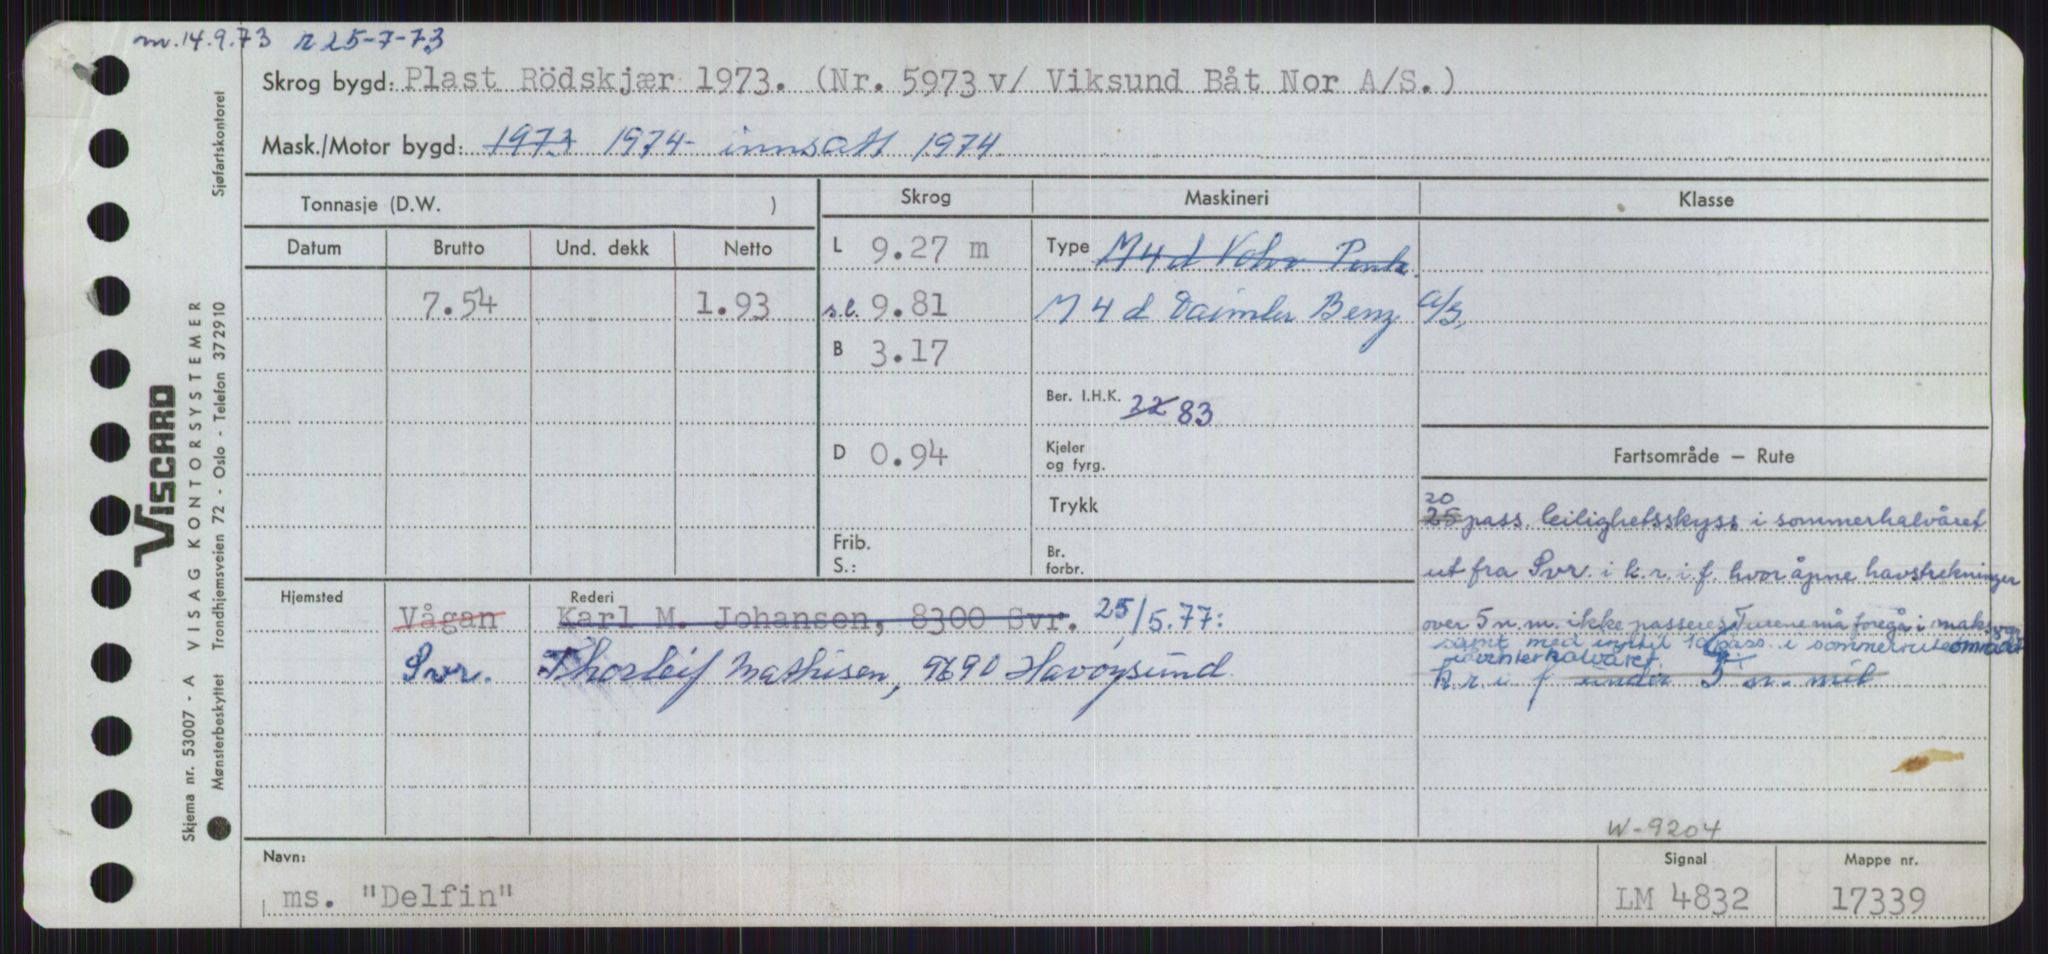 m.14.9.73 r 25-7-73
Skrog bygd: Plast Rödskjær 1973. (Nr. 5973 v/ Viksund Båt Nor A/S.)
Mask./Motor bygd: 1973 1974 innsatt 1974
Tonnasje (D.W. )
Skrog
Maskineri
Klasse
Datum
Brutto
Und. dekk
Netto
7.54
1.93
L 9.27 m
s.l. 9.81
B 3.17
D 0.94
Frib.
S.:
Type M4d Volvo Penta.
M 4 d Daimler Benz A/G.
Ber. I.H.K. 22 83
Kjeler
og fyrg.
Trykk
Br.
forbr.
Fartsområde — Rute
20
25 pass. leilighetsskyss i sommerhalvåret
ut fra Svr. i k.r.i.f. hvor åpne havstrekninger
over 5 n.m. ikke passeres. Turene må foregå i maks
samt med inntil 10 pass. i sommerruteområdet
i vinterhalvåret.
k r i f under 5 n. mil
Hjemsted
Rederi
Vågan Karl M. Johansen, 8300 Svr. 25/5.77:
Svr. Thorleif Mathisen, 9690 Havøysund
W-9204
Navn:
ms. "Delfin"
Signal
LM 4832
Mappe nr.
17339
Sjøfartskontoret
VISCARD
Skjema nr. 53007 - A VISAG KONTORSYSTEMER
Mønsterbeskyttet Trondhjemsveien 72 - Oslo - Telefon 372910